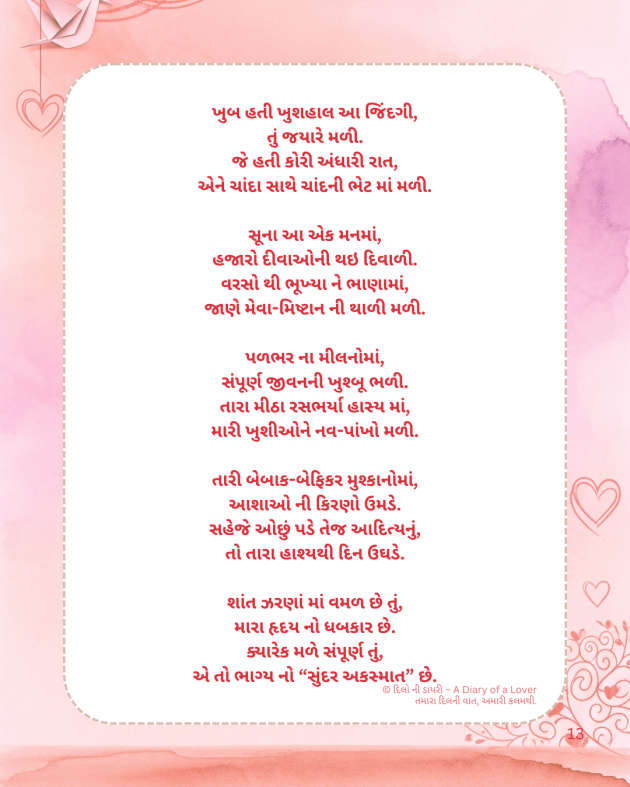 ખુબ હતી ખુશહાલ આ જિંદગી,
તું જયારે મળી.
જે હતી કોરી અંધારી રાત,
એને ચાંદા સાથે ચાંદની ભેટ માં મળી.
સૂના આ એક મનમાં,
હજારો દીવાઓની થઇ દિવાળી.
વરસો થી ભૂખ્યા ને ભાણામાં,
જાણે મેવા-મિષ્ટાન ની થાળી મળી.
પળભર ના મીલનોમાં,
સંપૂર્ણ જીવનની ખુશ્બૂ ભળી.
તારા મીઠા રસભર્યા હાસ્ય માં,
મારી ખુશીઓને નવ-પાંખો મળી.
તારી બેબાક-બેફિકર મુશ્કાનોમાં,
આશાઓ ની કિરણો ઉમડે.
સહેજે ઓછું પડે તેજ આદિત્યનું,
તો તારા હાશ્યથી દિન ઉઘડે.
શાંત ઝરણાં માં વમળ છે તું,
મારા હૃદય નો ધબકાર છે.
ક્યારેક મળે સંપૂર્ણ તું,
એ તો ભાગ્ય નો “સુંદર અકસ્માત” છે.
© દિલો ની ડાયરી – A Diary of a Lover
તમારા દિલની વાત, અમારી કલમથી.
13